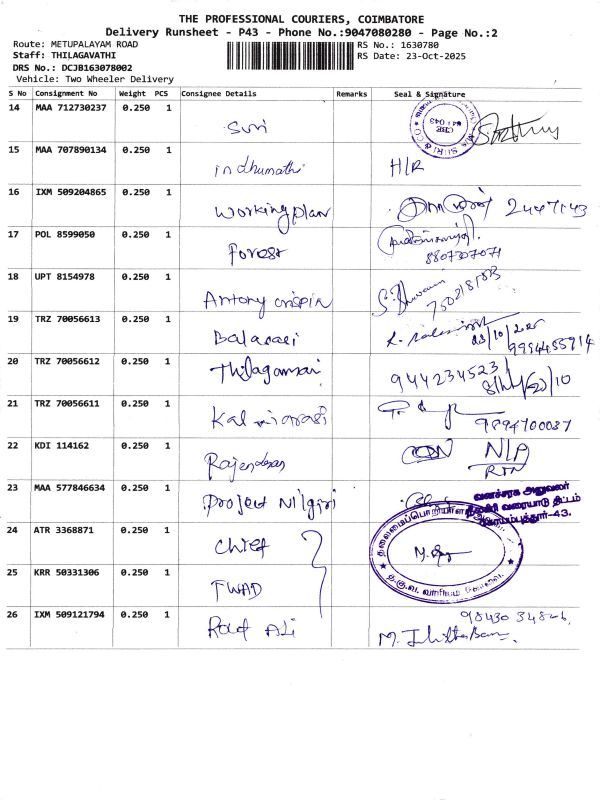 THE PROFESSIONAL COURIERS, COIMBATORE
Delivery Runsheet - P43 - Phone No.:9047080280 - Page No.:2
Route: METUPALAYAM ROAD RS No.: 1630780
Staff: THILAGAVATHI RS Date: 23-Oct-2025
DRS No.: DCJB163078002
Vehicle: Two Wheeler Delivery
S No Consignment No Weight PCS Consignee Details Remarks Seal & Signature
14 MAA 712730237 0.250 1
Suri
15 MAA 707890134 0.250 1
indhumathi H/R
16 IXM 509204865 0.250 1
Working plan 2447143
17 POL 8599050 0.250 1
Forest
8807307071
18 UPT 8154978 0.250 1
Antony crispin
19 TRZ 70056613 0.250 1
Balarasi 23/10/2025
9994455914
20 TRZ 70056612 0.250 1
Thilagamani 9442345231
21 TRZ 70056611 0.250 1
Kalaiarasi 9894700087
22 KDI 114162 0.250 1
Rajendran N/P
RTN
23 MAA 577846634 0.250 1
Project Nilgiri
வனச்சரக அலுவலர்
24 ATR 3368871 0.250 1
Chief
25 KRR 50331306 0.250 1
TWAD
26 IXM 509121794 0.250 1
Rauf Ali